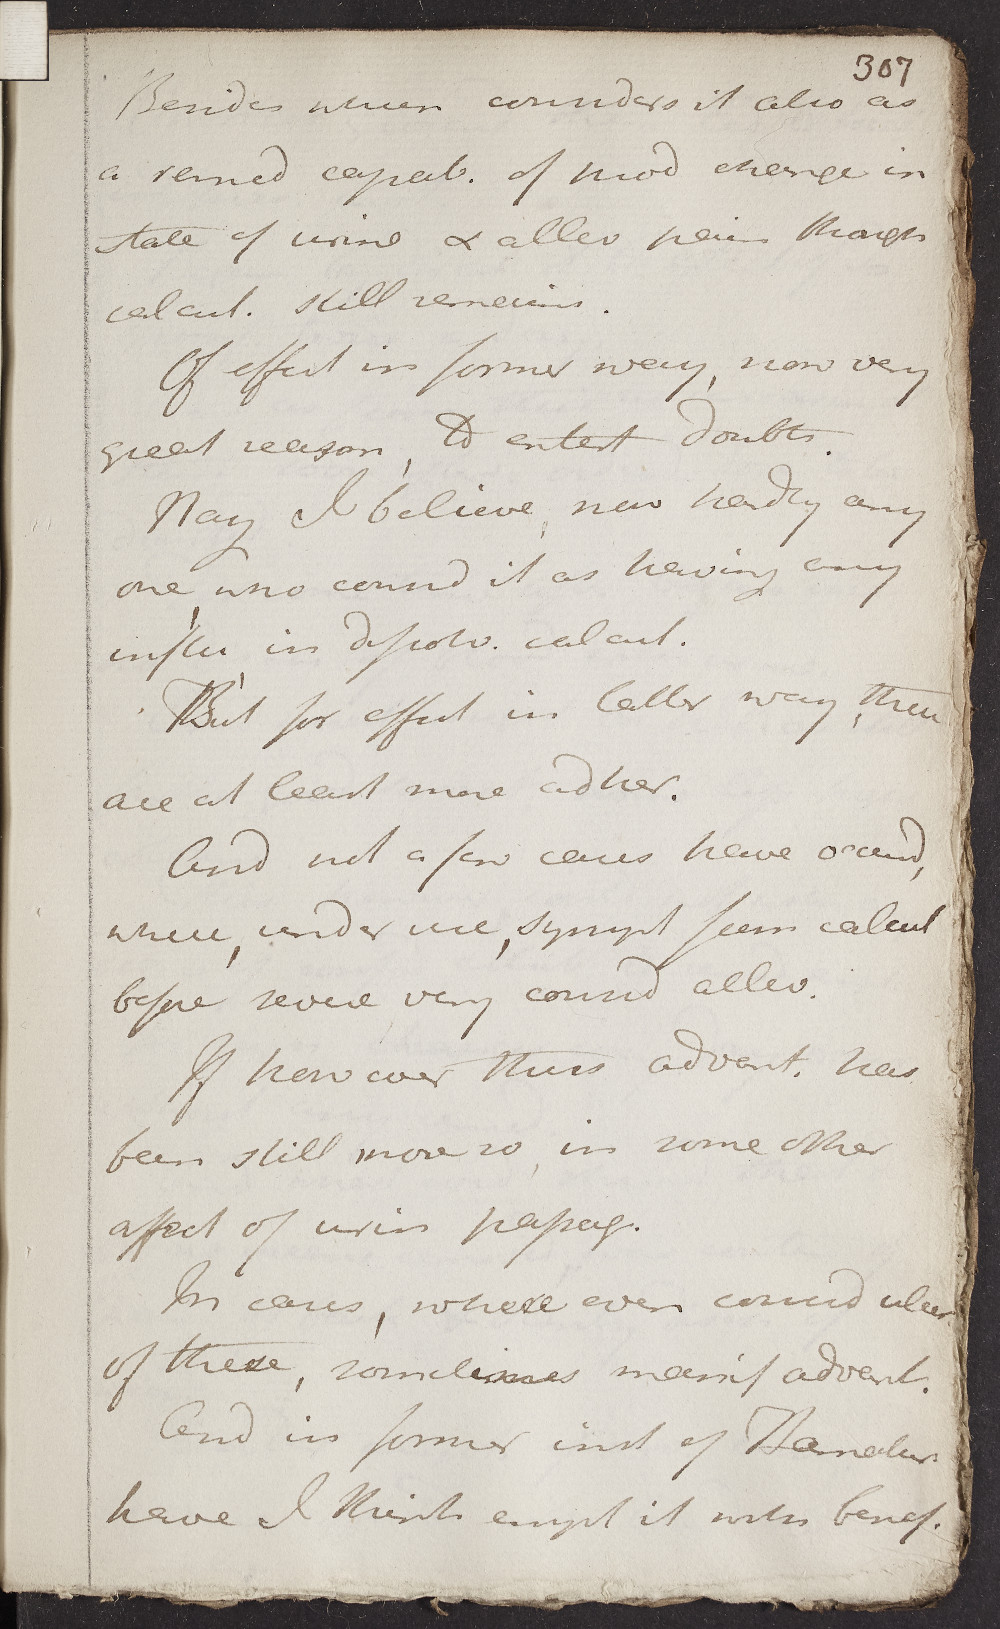 307
Besides when considers it also as
a remed capab. of prod change in
state of urine & allev pain though
calcul. still remains.
Of effect in former way, now very
great reason, to entert doubts.
Nay I believe, now hardly any
one, who consid it as having any
influ, in dissolv. calcul.
But for effect in latter way, there
are at least more adher.
And not a few cases have occurrd,
where, under use, sympt from calcul
before severe very consid allev.
If however this advant. has
been still more so, in some other
affect of urin passag.
In cases, where even consid ulcer
of these, sometimes manif advant.
And in former inst of
have I think empl it with benef.